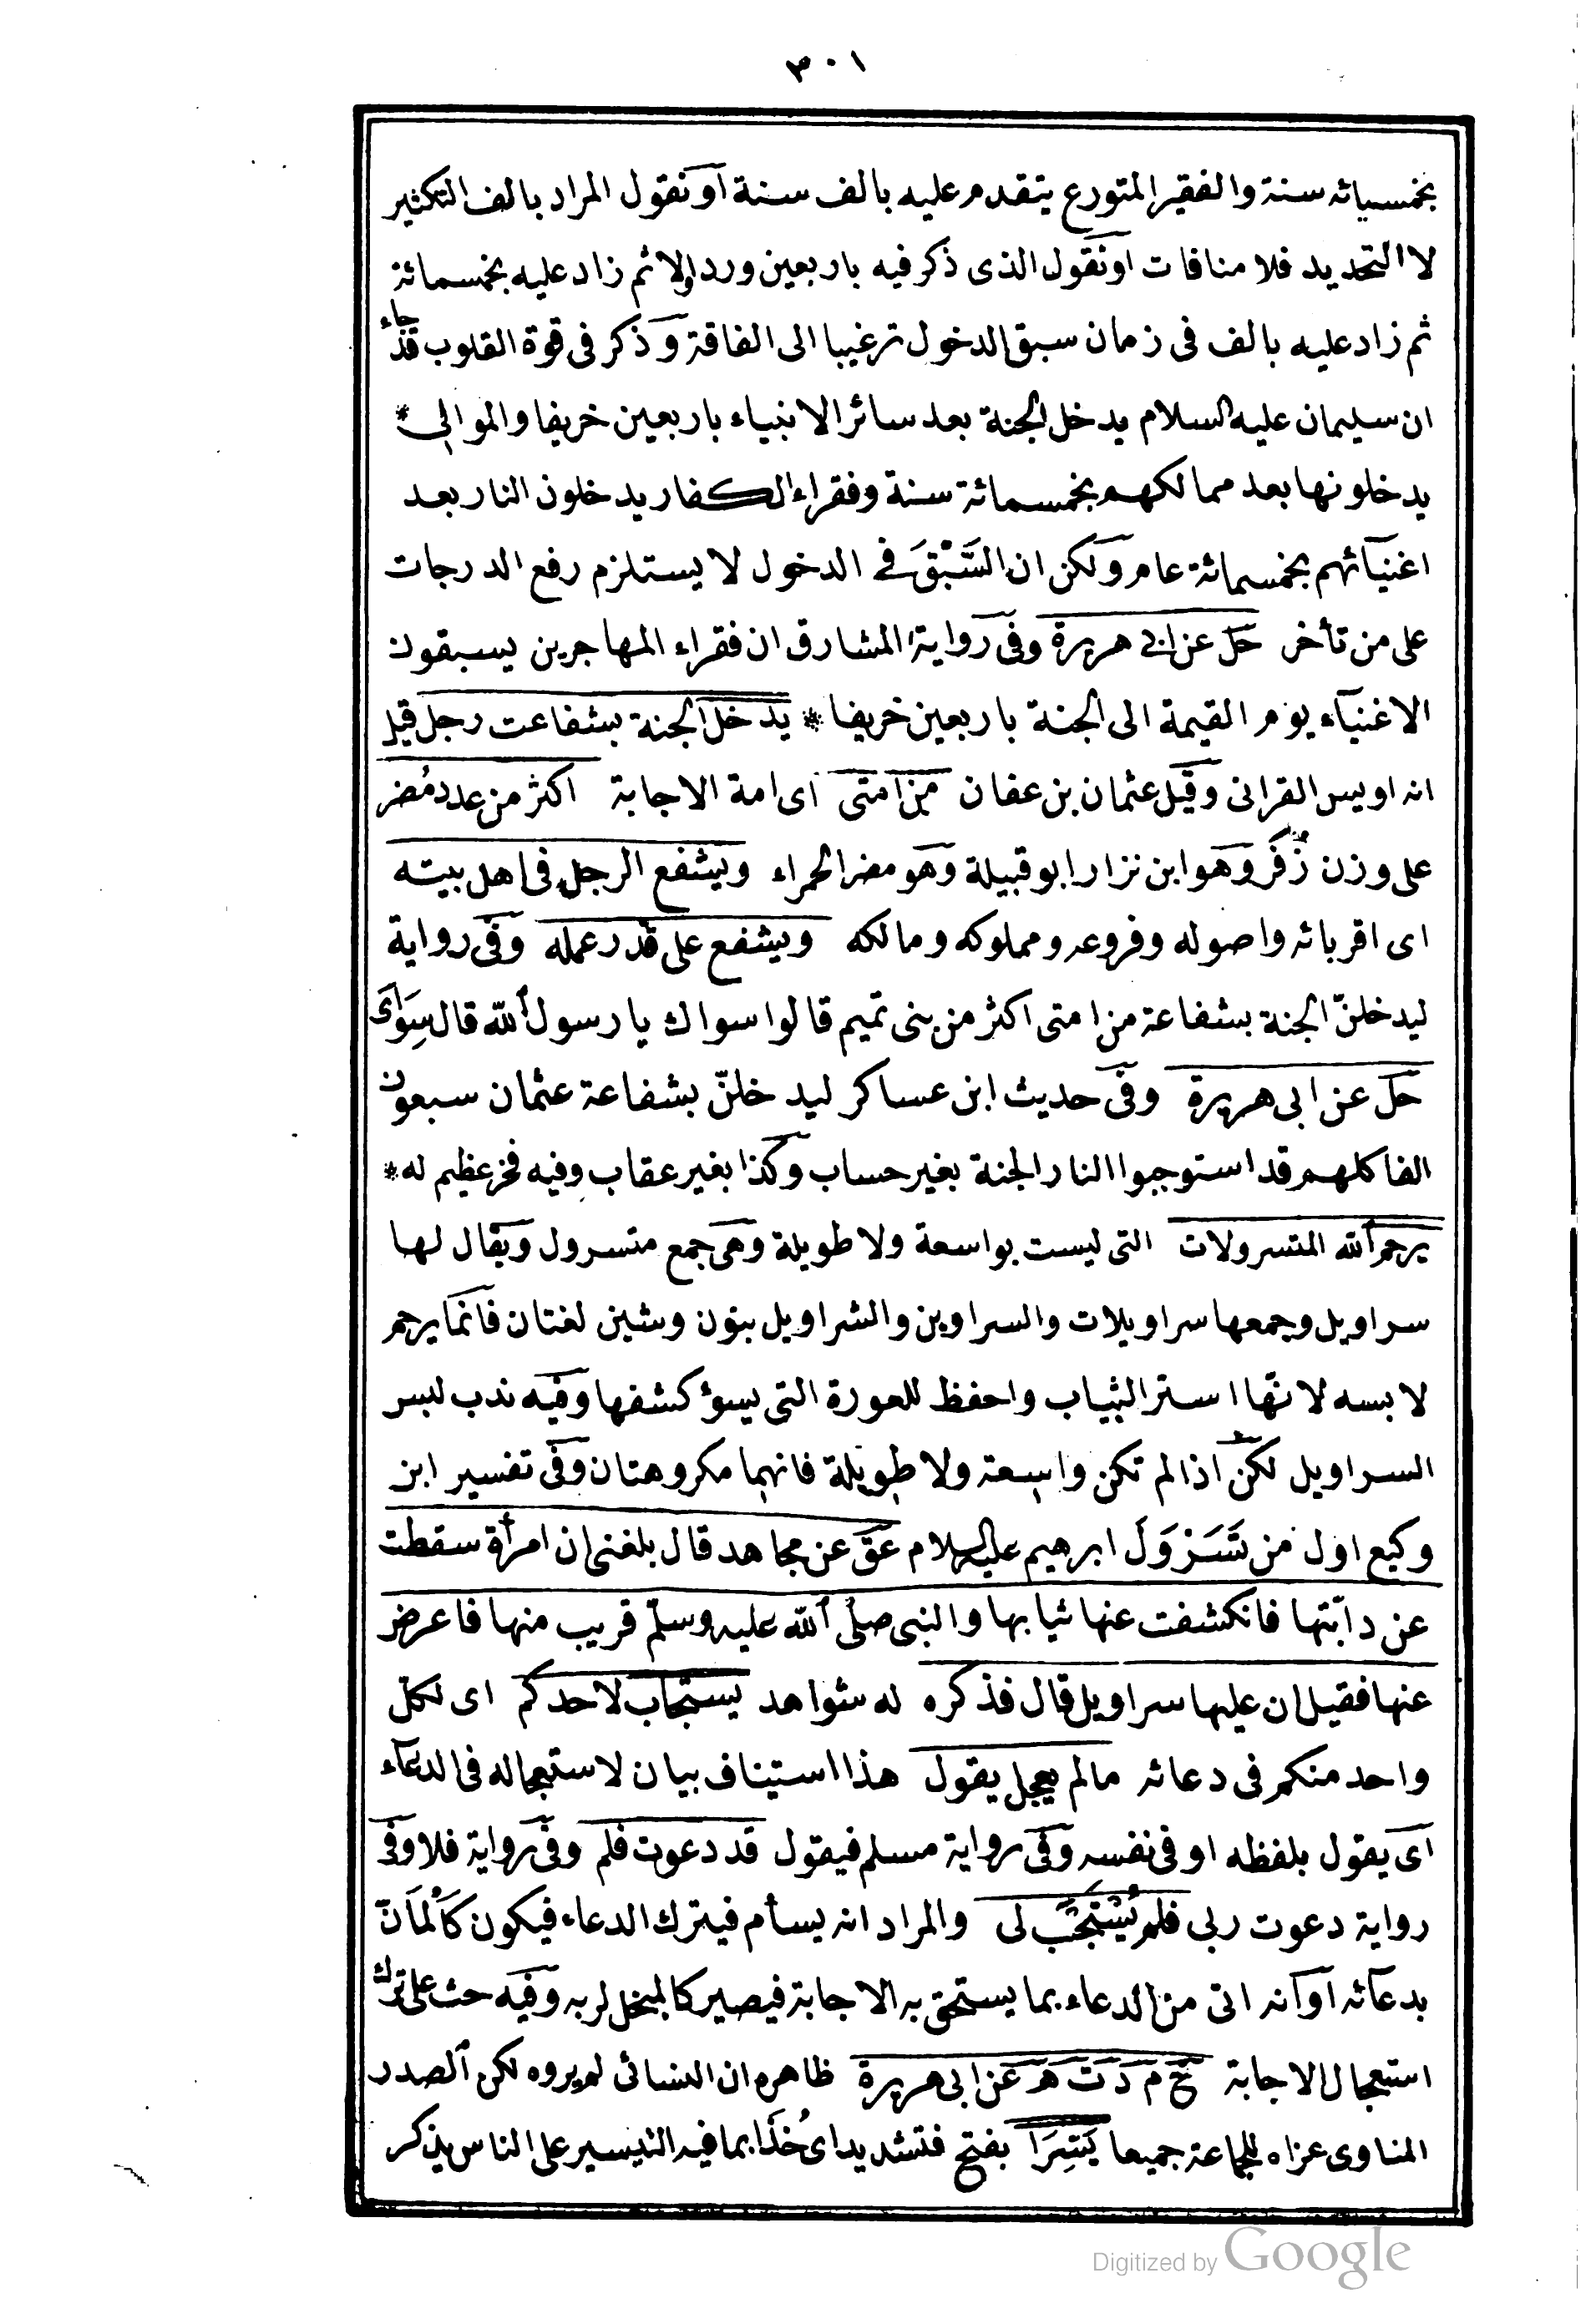 ٣٠١
بخمسمائه سنة والفقير المتورع يتقدم عليه بالف سنة او نقول المراد بالف التكثير
لا التحديد فلا منافات او نقول الذى ذكر فيه باربعين ورد اولا ثم زاد عليه بخمسمائة
ثم زاد عليه بالف فى زمان سبق الدخول ترغيبا الى الفاقة وذكر فى قوة القلوب قد جاء
ان سليمان عليه السلام يدخل الجنة بعد سائر الانبياء باربعين خريفا والموالى *
يدخلونها بعد ممالكهم بخمسمائة سنة وفقراء الكفار يدخلون النار بعد
اغنيائهم بخمسمائة عام ولكن ان السَّبْقَ فى الدخول لا يستلزم رفع الدرجات
على من تأخر حل عن ابى هريرة وفى رواية المشارق ان فقراء المهاجرين يسبقون
الاغنياء يوم القيمة الى الجنة باربعين خريفا * يدخل الجنة بشفاعت رجل قيل
انه اويس القرانى وقيل عثمان بن عفان من امتى اى امة الاجابة اكثر من عدد مُضر
على وزن زُفَر وهو ابن نزار ابو قبيلة وهو مضر الحمراء ويشفع الرجل فى اهل بيته
اى اقربائه واصوله وفروعه ومملوكه ومالكه ويشفع على قدر عمله وفى رواية
ليدخلنّ الجنة بشفاعة من امتى اكثر من بنى تميم قالوا سواك يا رسول الله قال سِوَاىَ
حل عن ابى هريرة وفى حديث ابن عساكر ليدخلنّ بشفاعة عثمان سبعون
الفا كلهم قد استوجبوا النار الجنة بغير حساب وكذا بغير عقاب وفيه فخر عظيم له *
يرحم الله المتسرولات التى ليست بواسعة ولا طويلة وهى جمع متسرول ويقال لها
سراويل وجمعها سراويلات والسراوين والشراويل بنون وشين لغتان فانما يرحم
لابسه لانّها استر الثياب واحفظ للعورة التى يسوؤ كشفها وفيه ندب لبس
السراويل لكن اذا لم تكن واسعة ولا طويلة فانهما مكروهتان وفى تفسير ابن
وكيع اول من تَسَرْوَلَ ابرهيم عليه السلام عق عن مجاهد قال بلغنى ان امرأة سقطت
عن دابّتها فانكشفت عنها ثيابها والنبى صلى الله عليه وسلّم قريب منها فاعرض
عنها فقيل ان عليها سراويل قال فذكره له شواهد يستجاب لاحدكم اى لكل
واحد منكم فى دعائه مالم يعجل يقول هذا استيناف بيان لاستعجاله فى الدعاء
اى يقول بلفظه او فى نفسه وفى رواية مسلم فيقول قد دعوت فلم وفى رواية فلا وفى
رواية دعوت ربى فلم يُسْتَجَبْ لى والمراد انه يسأم فيترك الدعاء فيكون كَالْمَانّ
بدعائه او انه اتى من الدعاء بما يستحق به الاجابة فيصير كالمبخل لربه وفيه حث على ترك
استعجال الاجابة خ م د ت هـ عن ابى هريرة ظاهره ان النسائى لم يروه لكن الصدر
المناوى عزاه للجماعة جميعا يَسِّرَا بفتح فتشديد اى خُذَا بما فيه التيسير على الناس بذكر
Digitized by Google